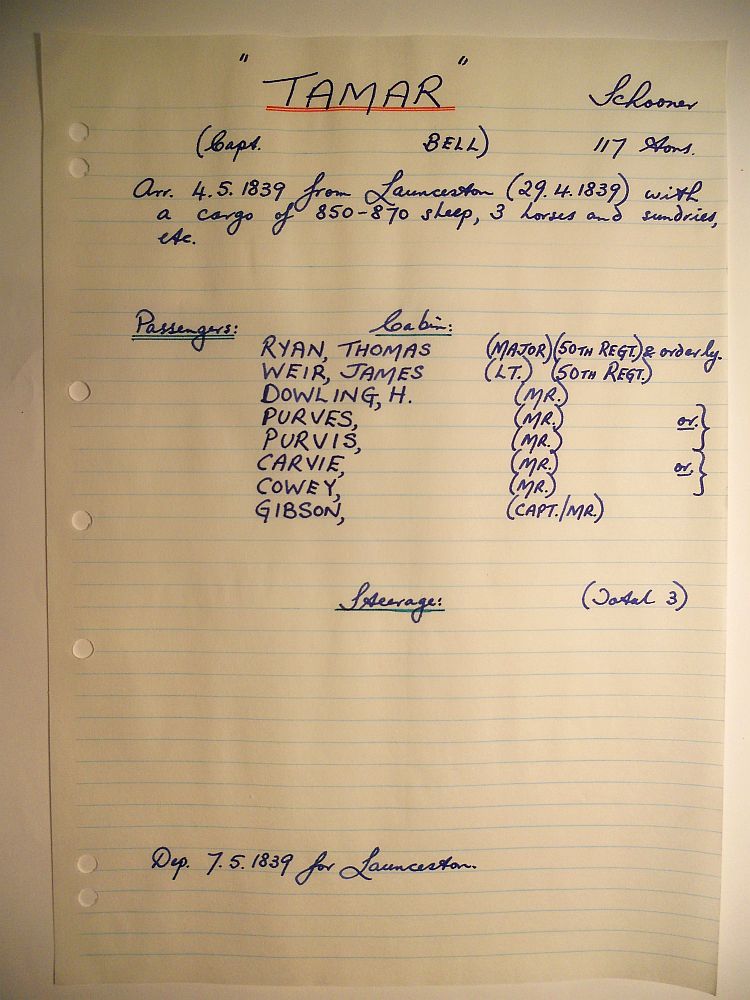 "TAMAR" Schooner
(Capt. BELL) 117 Tons.
Arr. 4.5.1839 from Launceston (29.4.1839) with
a cargo of 850-870 sheep, 3 horses and sundries,
etc.
Passengers: Cabin:
RYAN, THOMAS (MAJOR) (50TH REGT.) & orderly.
WEIR, JAMES (LT.) (50TH REGT.)
DOWLING, H. (MR.)
PURVES, (MR.) or. }
PURVIS, (MR.)
CARVIE, (MR.) or. }
COWEY, (MR.)
GIBSON, (CAPT./MR.)
Steerage: (Total 3)
Dep. 7.5.1839 for Launceston.